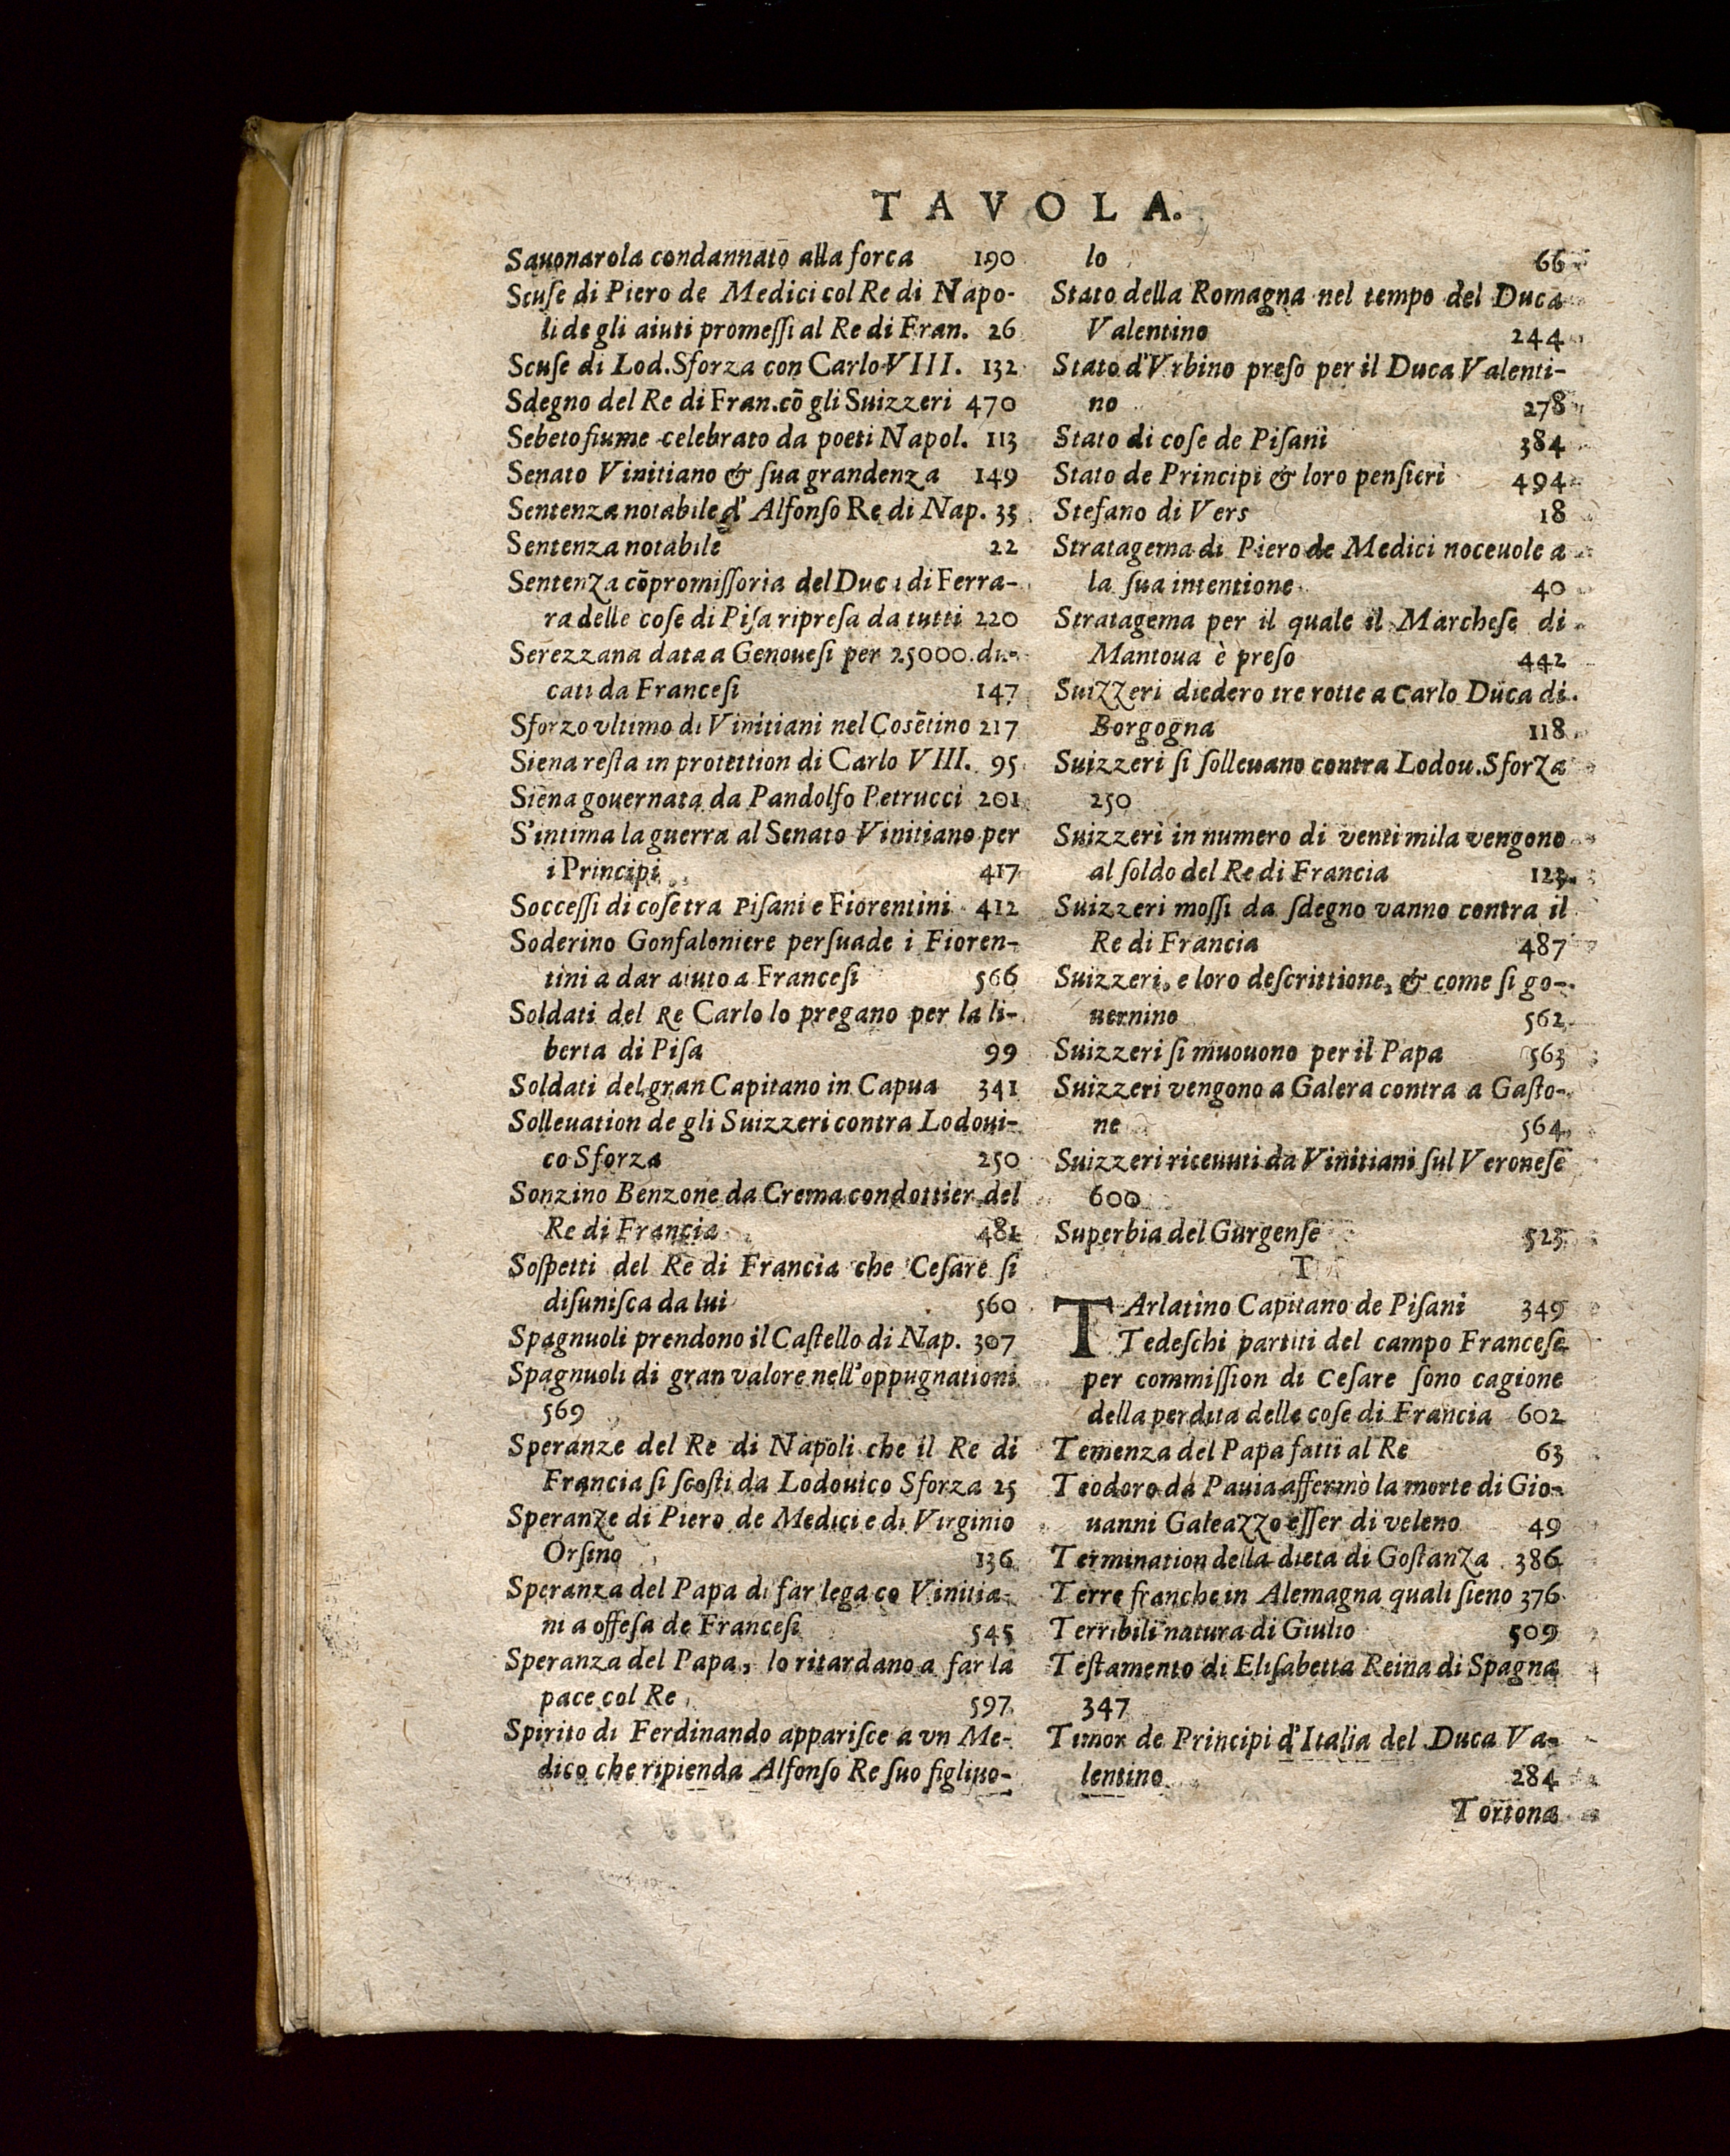 TAVOLA.
Sauonarola condannato alla forca 190
Scuſe di Piero de Medici col Re di Napo-
li de gli aiuti promeſſi al Re di Fran. 26
Scuſe di Lod. Sforza con Carlo VIII. 132
Sdegno del Re di Fran. cō gli Suizzeri 470
Sebeto fiume celebrato da poeti Napol. 113
Senato Vinitiano & ſua grandenza 149
Sentenza notabile d'Alfonſo Re di Nap. 35
Sentenza notabile 22
Sentenza cōpromiſſoria del Duca di Ferra-
ra delle coſe di Piſa ripreſa da tutti 220
Serezzana data a Genoueſi per 25000. du-
cati da Franceſi 147
Sforzo vltimo di Vinitiani nel Coſētino 217
Siena reſta in protettion di Carlo VIII. 95
Siena gouernata da Pandolfo Petrucci 201
S'intima la guerra al Senato Vinitiano per
i Principi 417
Socceſſi di coſe tra Piſani e Fiorentini 412
Soderino Gonfaloniere perſuade i Fioren-
tini a dar aiuto a Franceſi 566
Soldati del Re Carlo lo pregano per la li-
berta di Piſa 99
Soldati del gran Capitano in Capua 341
Solleuation de gli Suizzeri contra Lodoui-
co Sforza 250
Sonzino Benzone da Crema condottier del
Re di Francia 481
Soſpetti del Re di Francia che Ceſare ſi
diſuniſca da lui 560
Spagnuoli prendono il Caſtello di Nap. 307
Spagnuoli di gran valore nell'oppugnationi
569
Speranze del Re di Napoli che il Re di
Francia ſi ſcoſti da Lodouico Sforza 25
Speranze di Piero de Medici e di Virginio
Orſino 136
Speranza del Papa di far lega co Vinitia-
ni a offeſa de Franceſi 545
Speranza del Papa, lo ritardano a far la
pace col Re 597
Spirito di Ferdinando appariſce a vn Me-
dico che ripienda Alfonſo Re ſuo figliuo-
lo 66
Stato della Romagna nel tempo del Duca
Valentino 244
Stato d'Vrbino preſo per il Duca Valenti-
no 278
Stato di coſe de Piſani 384
Stato de Principi & loro penſieri 494
Stefano di Vers 18
Stratagema di Piero de Medici noceuole a
la ſua intentione 40
Stratagema per il quale il Marcheſe di
Mantoua è preſo 442
Suizzeri diedero tre rotte a Carlo Duca di
Borgogna 118
Suizzeri ſi ſolleuano contra Lodou. Sforza
250
Suizzeri in numero di venti mila vengono
al ſoldo del Re di Francia 123
Suizzeri moſſi da ſdegno vanno contra il
Re di Francia 487
Suizzeri, e loro deſcrittione, & come ſi go-
uernino 562
Suizzeri ſi muouono per il Papa 563
Suizzeri vengono a Galera contra a Gaſto-
ne 564
Suizzeri riceuuti da Vinitiani ſul Veroneſe
600
Superbia del Gurgenſe 523
T
TArlatino Capitano de Piſani 349
Tedeſchi partiti del campo Franceſe
per commiſſion di Ceſare ſono cagione
della perdita delle coſe di Francia 602
Temenza del Papa fatti al Re 63
Teodoro da Pauia affermò la morte di Gio-
uanni Galeazzo eſſer di veleno 49
Termination della dieta di Goſtanza 386
Terre franche in Alemagna quali ſieno 376
Terribili natura di Giulio 509
Teſtamento di Eliſabetta Reina di Spagna
347
Timor de Principi d'Italia del Duca Va-
lentino 284
Tortona